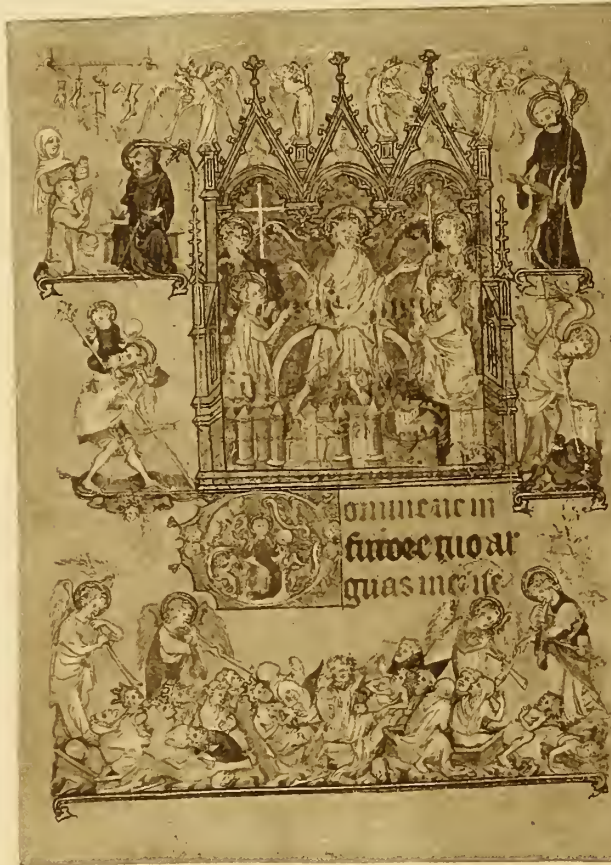 omine ne in
furore tuo ar
guas me ne